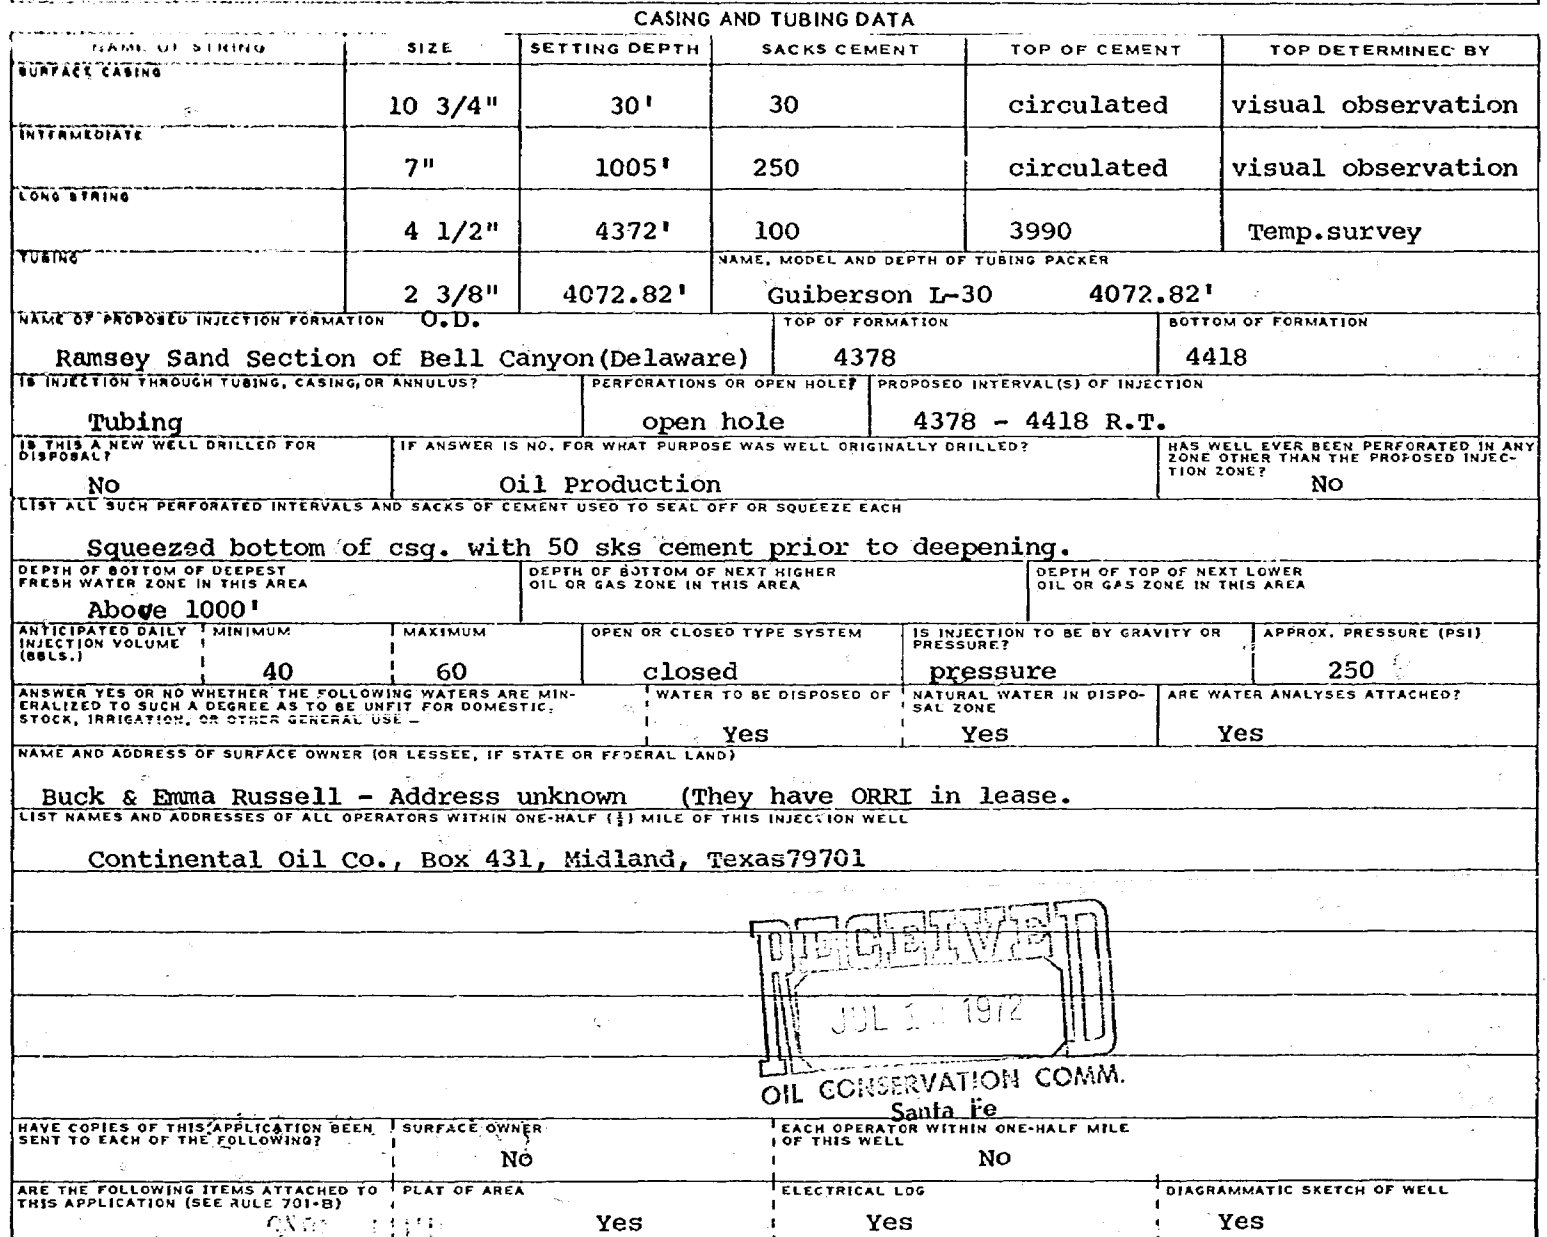 CASING AND TUBING DATA
NAME OF STRING SIZE SETTING DEPTH SACKS CEMENT TOP OF CEMENT TOP DETERMINED BY
SURFACE CASING
10 3/4" 30' 30 circulated visual observation
INTERMEDIATE
7" 1005' 250 circulated visual observation
LONG STRING
4 1/2" 4372' 100 3990 Temp.survey
TUBING NAME, MODEL AND DEPTH OF TUBING PACKER
2 3/8" 4072.82' Guiberson L-30 4072.82'
O.D.
NAME OF PROPOSED INJECTION FORMATION TOP OF FORMATION BOTTOM OF FORMATION
Ramsey Sand Section of Bell Canyon(Delaware) 4378 4418
IS INJECTION THROUGH TUBING, CASING, OR ANNULUS? PERFORATIONS OR OPEN HOLE? PROPOSED INTERVAL(S) OF INJECTION
Tubing open hole 4378 - 4418 R.T.
IS THIS A NEW WELL DRILLED FOR DISPOSAL? IF ANSWER IS NO, FOR WHAT PURPOSE WAS WELL ORIGINALLY DRILLED? HAS WELL EVER BEEN PERFORATED IN ANY ZONE OTHER THAN THE PROPOSED INJEC-
TION ZONE?
No Oil Production No
LIST ALL SUCH PERFORATED INTERVALS AND SACKS OF CEMENT USED TO SEAL OFF OR SQUEEZE EACH
Squeezed bottom of csg. with 50 sks cement prior to deepening.
DEPTH OF BOTTOM OF DEEPEST FRESH WATER ZONE IN THIS AREA DEPTH OF BOTTOM OF NEXT HIGHER OIL OR GAS ZONE IN THIS AREA DEPTH OF TOP OF NEXT LOWER OIL OR GAS ZONE IN THIS AREA
Above 1000'
ANTICIPATED DAILY INJECTION VOLUME (BBLS.) MINIMUM MAXIMUM OPEN OR CLOSED TYPE SYSTEM IS INJECTION TO BE BY GRAVITY OR PRESSURE? APPROX. PRESSURE (PSI)
40 60 closed pressure 250
ANSWER YES OR NO WHETHER THE FOLLOWING WATERS ARE MIN-
ERALIZED TO SUCH A DEGREE AS TO BE UNFIT FOR DOMESTIC,
STOCK, IRRIGATION, OR OTHER GENERAL USE —
WATER TO BE DISPOSED OF NATURAL WATER IN DISPO-
SAL ZONE ARE WATER ANALYSES ATTACHED?
Yes Yes Yes
NAME AND ADDRESS OF SURFACE OWNER (OR LESSEE, IF STATE OR FEDERAL LAND)
Buck & Emma Russell - Address unknown (They have ORRI in lease.
LIST NAMES AND ADDRESSES OF ALL OPERATORS WITHIN ONE-HALF (½) MILE OF THIS INJECTION WELL
Continental Oil Co., Box 431, Midland, Texas79701
RECEIVED
JUL 1 1972
OIL CONSERVATION COMM.
Santa Fe
HAVE COPIES OF THIS APPLICATION BEEN SENT TO EACH OF THE FOLLOWING? SURFACE OWNER EACH OPERATOR WITHIN ONE-HALF MILE OF THIS WELL
No No
ARE THE FOLLOWING ITEMS ATTACHED TO THIS APPLICATION (SEE RULE 701-B) PLAT OF AREA ELECTRICAL LOG DIAGRAMMATIC SKETCH OF WELL
Yes Yes Yes